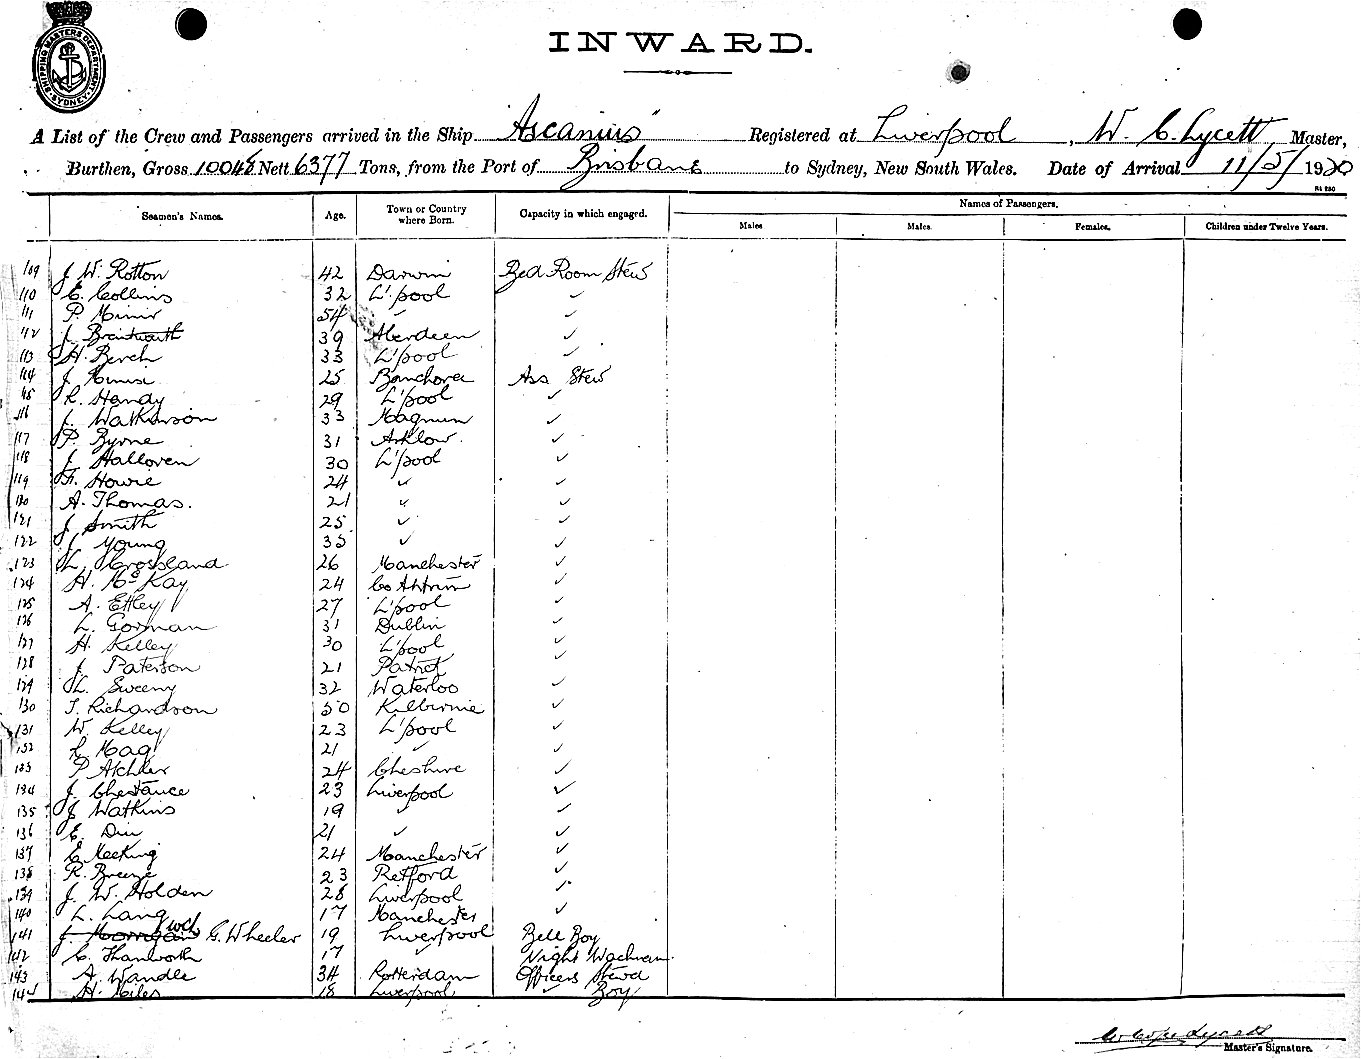 SHIPPING MASTERS DEPARTMENT SYDNEY
INWARD.
A List of the Crew and Passengers arrived in the Ship "Ascanius" Registered at Liverpool, W. C. Lycett Master,
Burthen, Gross 10048 Nett 6377 Tons, from the Port of Brisbane to Sydney, New South Wales. Date of Arrival 11/5/1920
Seamen's Names. Age. Town or Country where Born. Capacity in which engaged. Names of Passengers.
Males Males. Females. Children under Twelve Years.
109 J. W. Rotton 42 Darwin Bed Room Stew
110 C. Collins 32 L'pool ✓
111 P. 54 ✓ ✓
112 J. Braithwaith 39 Aberdeen ✓
113 H. Berch 33 L'pool ✓
114 J. 25 Ass Stew
115 R. Handy 29 L'pool ✓
116 J. Watkinson 33 Magnum ✓
117 P. Byrne 31 Arklow. ✓
118 J. Halloren 30 L'pool ✓
119 F. Howie 24 ✓ ✓
120 A. Thomas. 21 ✓ ✓
121 J. Smith 25 ✓ ✓
122 J. Young 35 ✓ ✓
123 L. Crossland 26 Manchester ✓
124 H. McKay 24 Co Antrim ✓
125 A. Etley 27 L'pool ✓
126 L. Gorman 31 Dublin ✓
127 H. Kelley 30 L'pool ✓
128 J. Paterson 21 ✓
129 L. Sweeny 32 Waterloo ✓
130 T. Richardson 50 Kilbirnie ✓
131 W. Kelley 23 L'pool ✓
132 R. May 21 ✓ ✓
133 P. 24 Cheshire ✓
134 J. Chestance 23 Liverpool ✓
135 J. Watkins 19 ✓ ✓
136 E. 21 ✓ ✓
137 E. Meeking 24 Manchester ✓
138 R. Breeze 23 Retford ✓
139 J. W. Holden 28 Liverpool ✓
140 L. Lang 17 Manchester ✓
141 J. G. Wheeler 19 Liverpool Bell Boy
142 C. Thanworth 17 ✓ Night Wachman
143 A. Wandle 34 Rotterdam Officers Stewd
144 H. Giles 18 Liverpool ✓ Boy
Master's Signature.